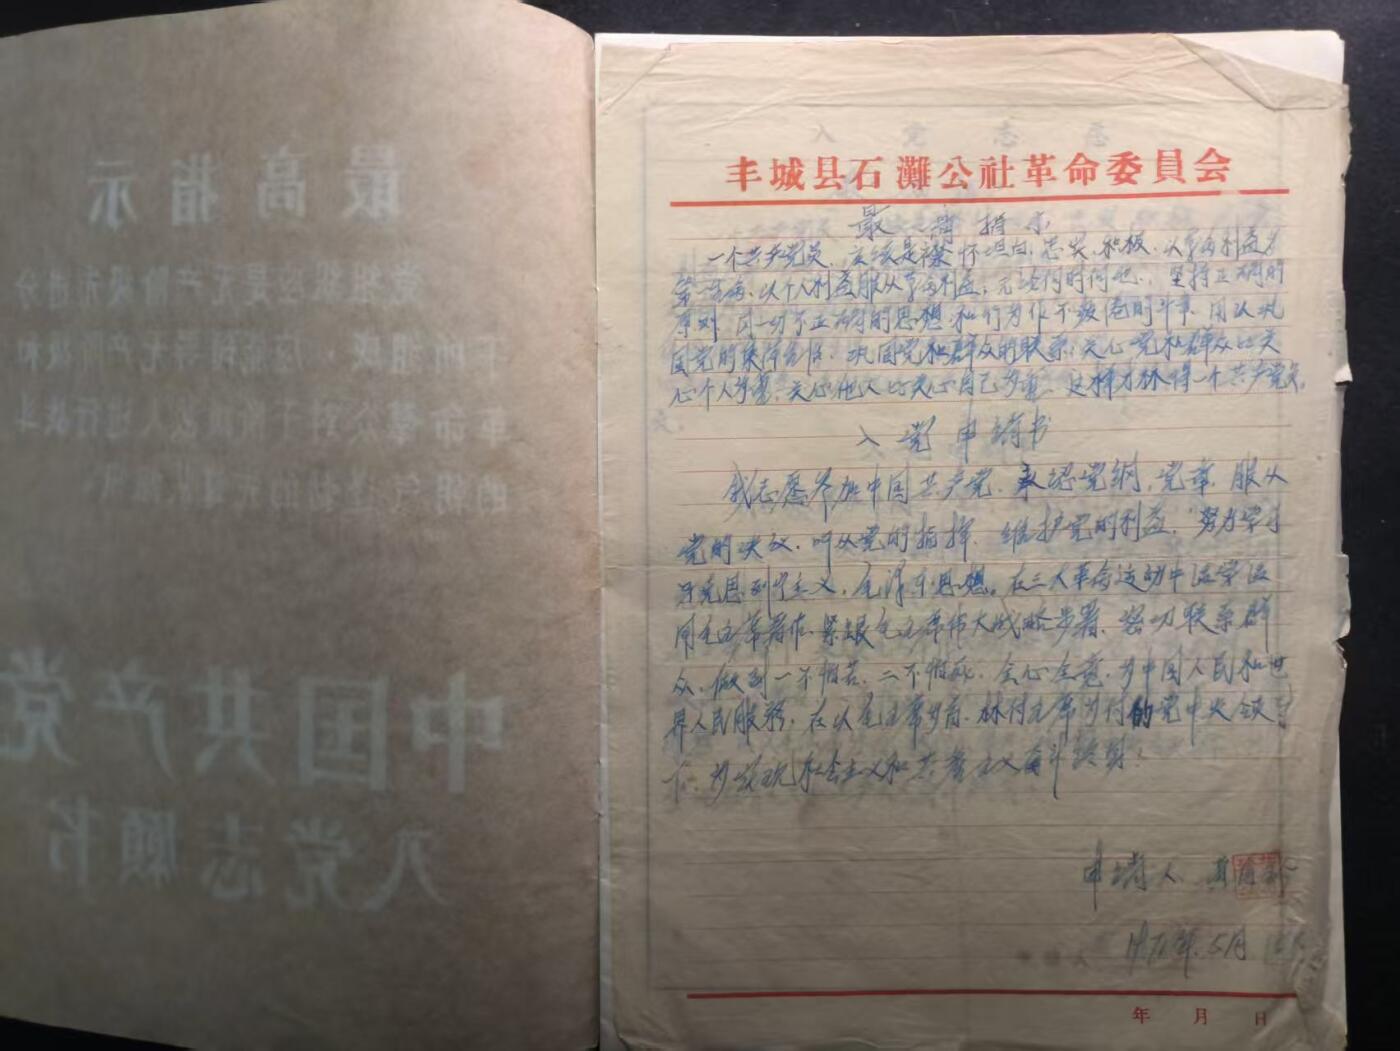 最高指示
党组织应是无产阶级先进分
子所组成，应能领导无产阶级和
革命群众对于阶级敌人进行战斗
的朝气蓬勃的先锋队组织
中国共产党
入党志愿书
入党志愿
丰城县石滩公社革命委員会
最高指示
一个共产党员，应该是襟怀坦白，忠实，积极，以革命利益为
第一生命，以个人利益服从革命利益；无论何时何地，坚持正确的
原则，同一切不正确的思想和行为作不疲倦的斗争，用以巩
固党的集体生活，巩固党和群众的联系；关心党和群众比关
心个人为重，关心他人比关心自己为重。这样才算得一个共产党员。
入党申请书
我志愿参加中国共产党，承认党纲，党章，服从
党的决议，听从党的指挥，维护党的利益，努力学习
马克思列宁主义，毛泽东思想。在三大革命运动中活学活
用毛主席著作，紧跟毛主席伟大战略步署，密切联系群
众，做到一不怕苦，二不怕死，全心全意，为中国人民和世
界人民服务，在以毛主席为首，林付主席为付的党中央领导
下，为实现社会主义和共产主义奋斗终身。
申请人
年 5月
年 月 日